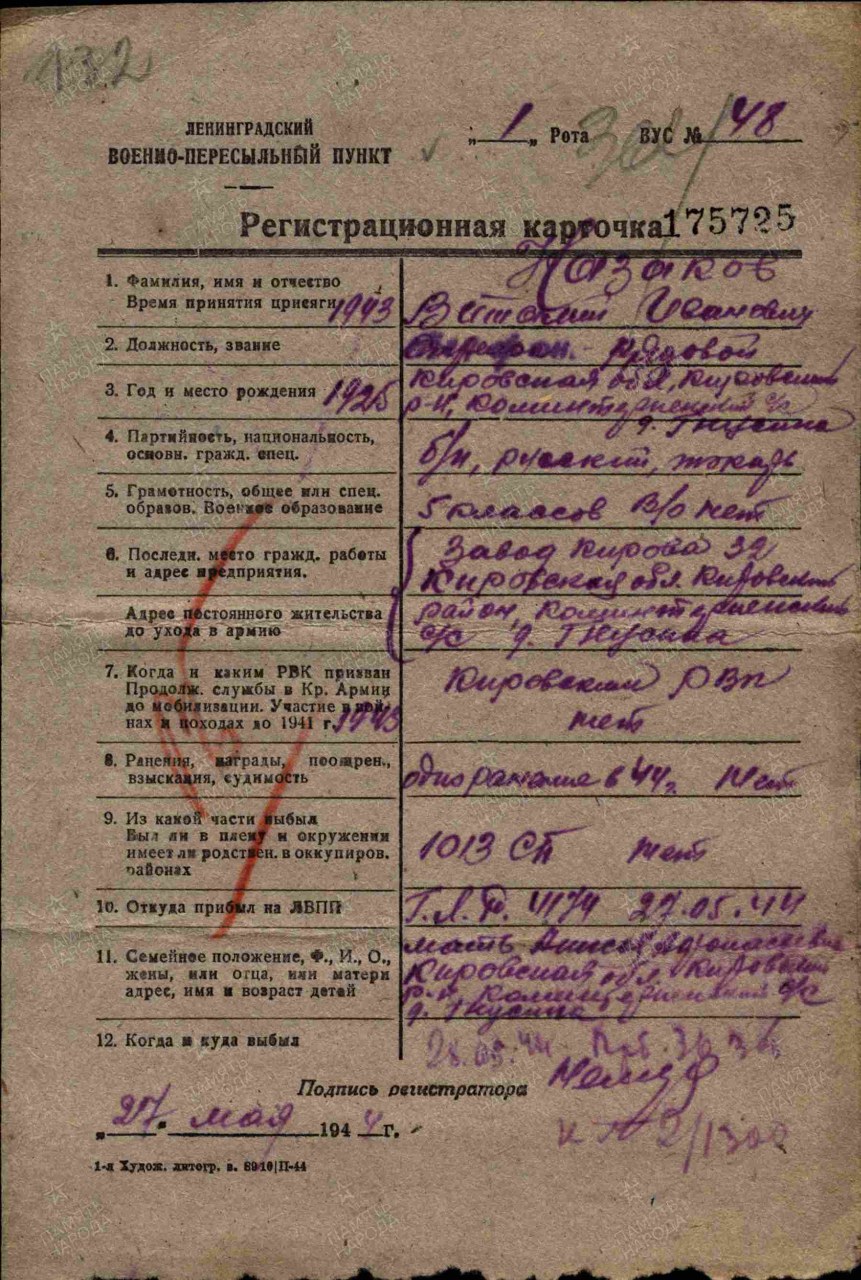 132
ЛЕНИНГРАДСКИЙ
ВОЕННО-ПЕРЕСЫЛЬНЫЙ ПУНКТ
„ 1 „ Рота ВУС № 48
Регистрационная карточка 175725
1. Фамилия, имя и отчество Казаков
Время принятия присяги 1943 Виталий Иванович
2. Должность, звание рядовой
3. Год и место рождения 1925 Кировская обл, Кировский
р-н, Коминтерновский с/с
д. Гнусина
4. Партийность, национальность,
основн. гражд. спец. б/п, русский, токарь
5. Грамотность, общее или спец.
образов. Военное образование 5 классов В/о нет
6. Последн. место гражд. работы Завод Кирова 32
и адрес предприятия. Кировская обл. Кировский
Адрес постоянного жительства район, Коминтерновский
до ухода в армию с/с д. Гнусина
7. Когда и каким РВК призван Кировский РВК
Продолж. службы в Кр. Армии
до мобилизации. Участие в вой- нет
нах и походах до 1941 г. 1943
8. Ранения, награды, поощрен.,
взыскания, судимость одно ранение в 44 г. Нет
9. Из какой части выбыл
Был ли в плену и окружении
имеет ли родствен. в оккупиров. 1013 СП нет
районах
10. Откуда прибыл на ЛВПП 1174 27.05.44
11. Семейное положение, Ф., И., О., мать
жены, или отца, или матери Кировская обл Кировский
адрес, имя и возраст детей р-н Коминтерновский с/с
д. Гнусина
12. Когда и куда выбыл 28.05.44
Подпись регистратора
„ 27 " мая 1944 г.
2/1300
1-я Худож. литогр. з. 6910|П-44
ПАМЯТЬ НАРОДА